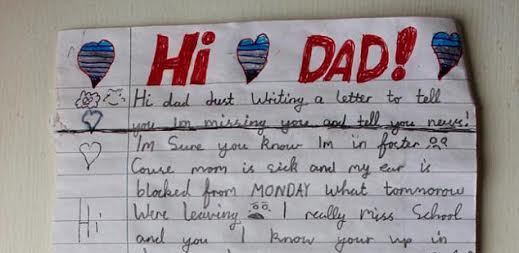 Hi DAD!
Hi dad dust writing a letter to tell
you Im missing you and tell you news!
Im Sure you know Im in foster
Couse mom is sick and my ear is
blocked from MONDAY what tommorow
Hi Were leaving I really miss School
and you I know your up in